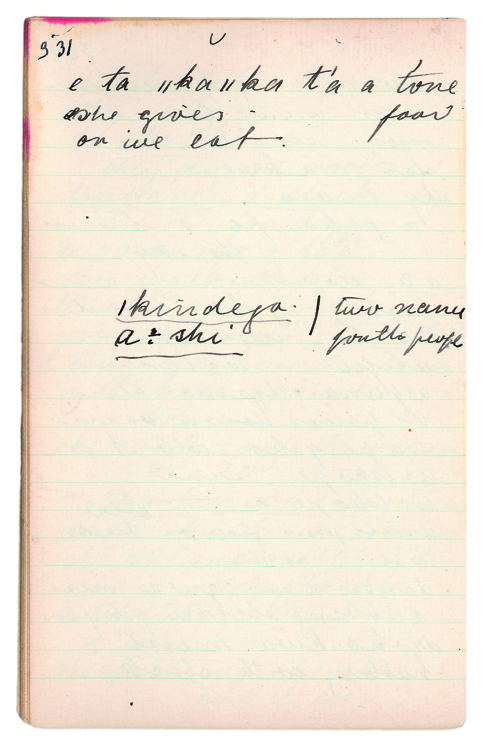 931
e ta ,,ka,,ka t'a a tone
she gives - food
or we eat.
,kindega. | two names
a:shi of the people